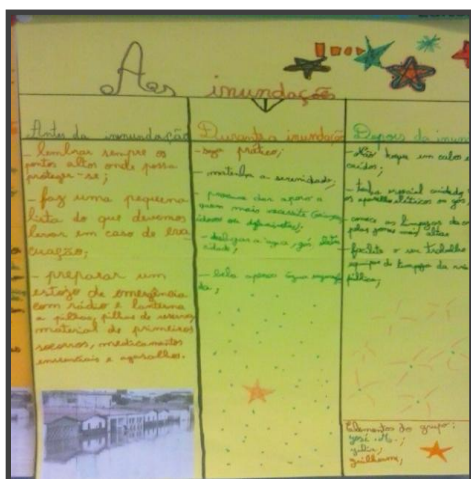 As inundações
Antes da inundação
- lembrar sempre os
pontos altos onde possa
proteger-se;
- faz uma pequena
lista do que devemos
levar em caso de eva
cuação;
- preparar um
estojo de emergência
com rádio e lanterna
a pilhas, pilhas de reserva,
material de primeiros
socorros, medicamentos
essenciais e agasalhos.
Durante a inundação
- seja prático;
- mantenha a serenidade;
- procure dar apoio a
quem mais necessite (crianças,
idosos ou deficientes);
- desligar a água, gás
cidade;
- beba apenas água engarrafa
da;
Depois da inun
- Não toque em cabos e
caídos;
- tenha especial cuidado
os aparelhos elétricos ou gás;
- comece as limpezas da c
pelas zonas mais altas
- facilite o trabalho
equipas de limpeza da via
pública;
Elementos do grupo:
José M.;
guilherme;